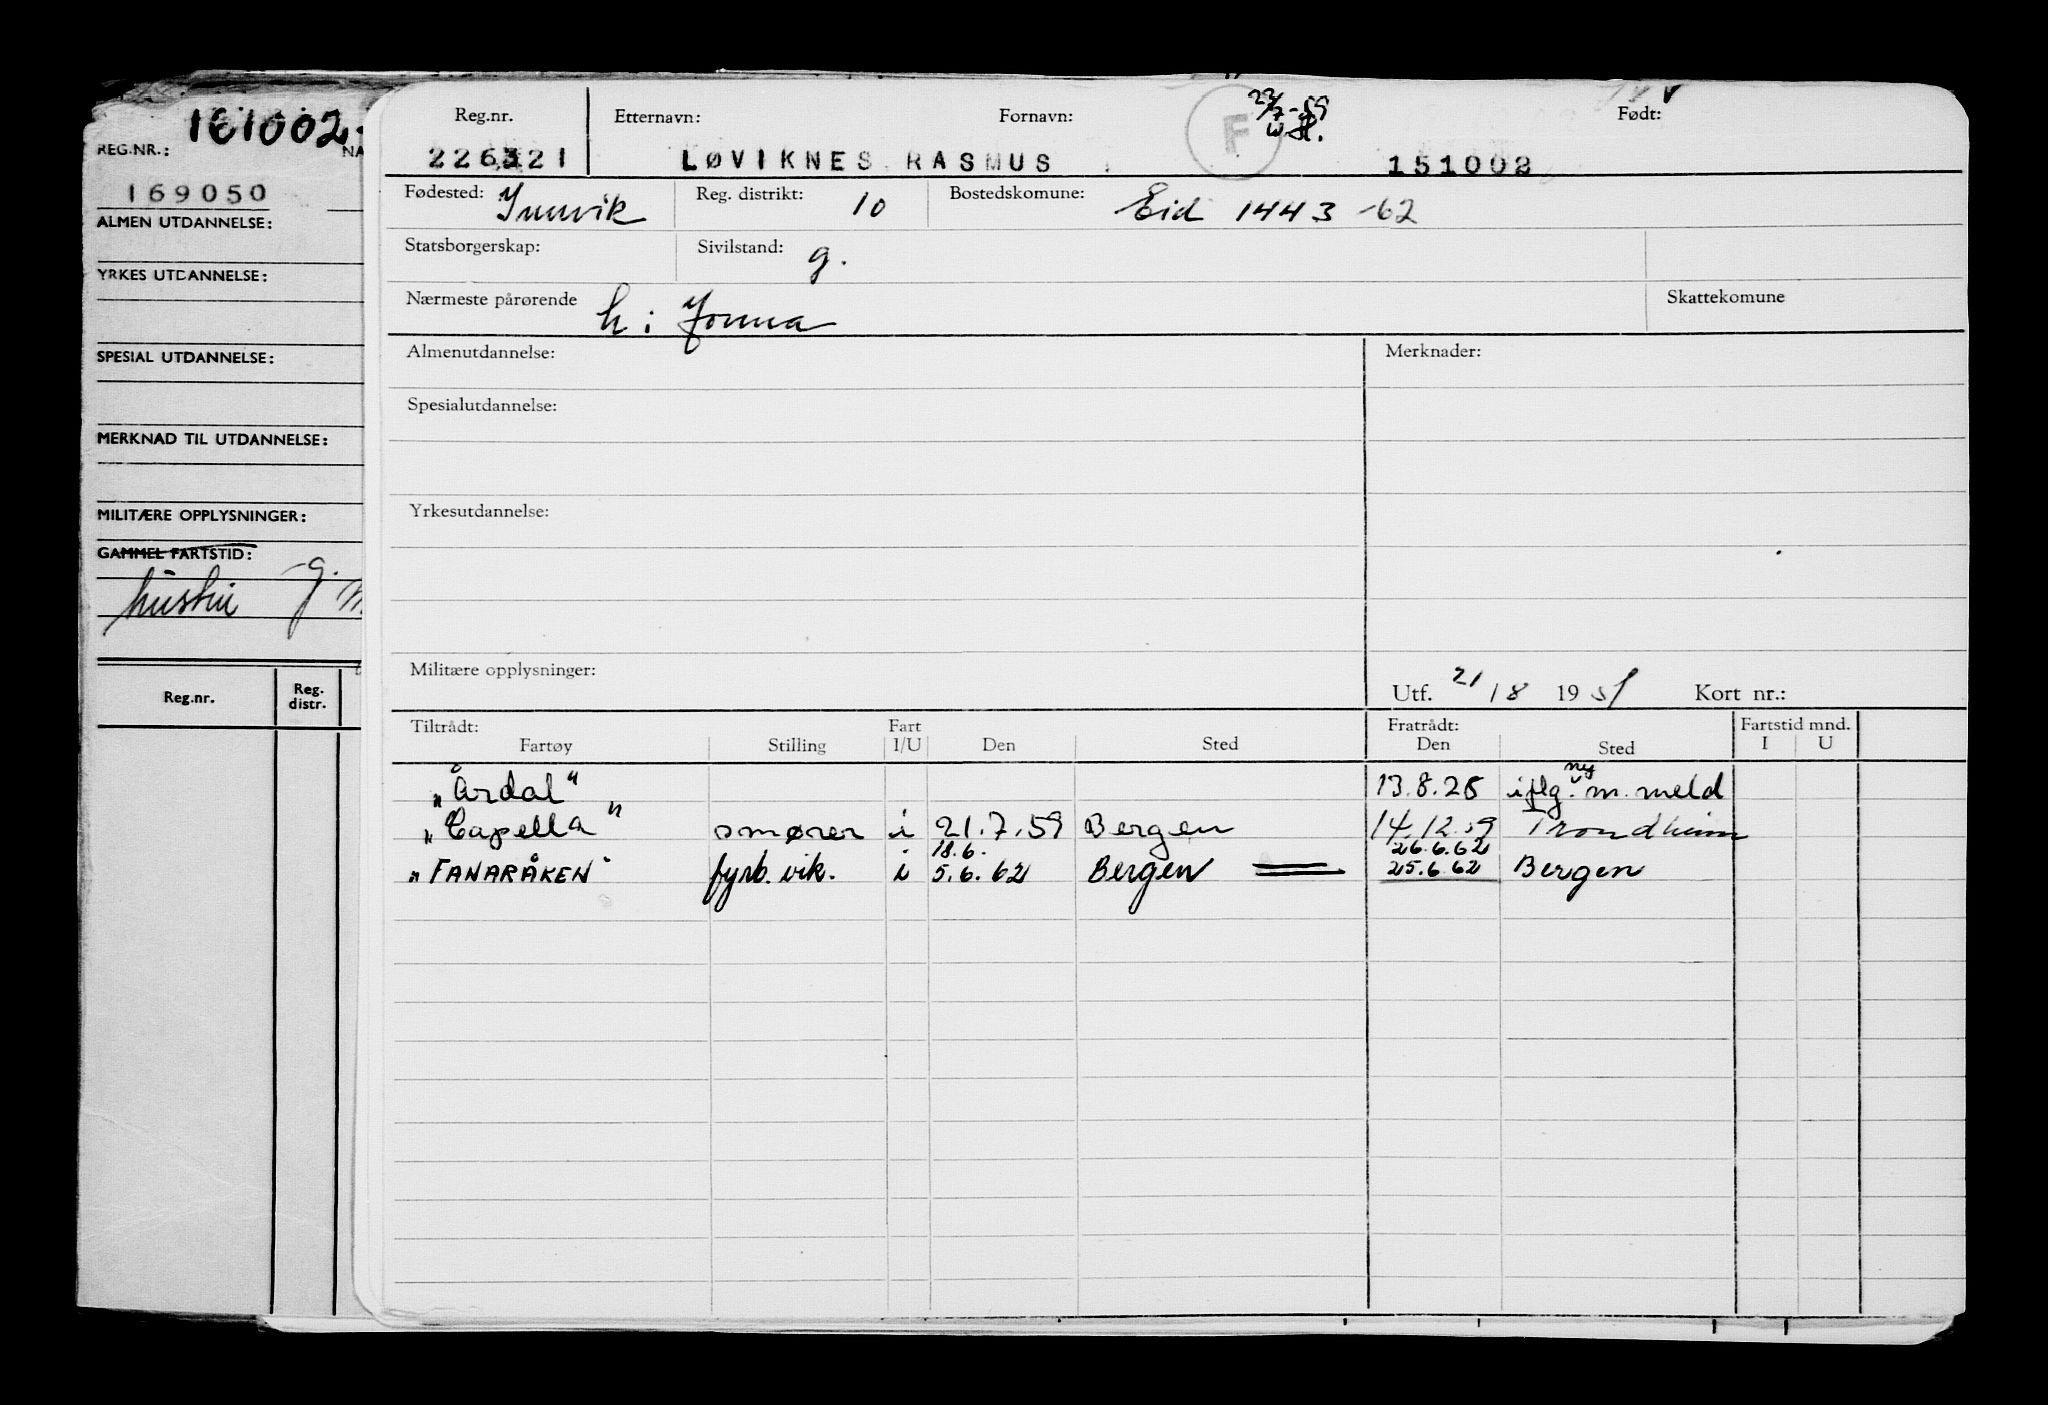 161002
REG.NR.: NA
169050
ALMEN UTDANNELSE:
YRKES UTDANNELSE:
SPESIAL UTDANNELSE:
MERKNAD TIL UTDANNELSE:
MILITÆRE OPPLYSNINGER:
GAMMEL FARTSTID:
hustru g.
Reg.nr. Reg. distr.
Reg.nr. Etternavn: Fornavn: F 22/7-59 Født:
226321 LØVIKNES RASMUS 151002
Fødested: Innvik Reg. distrikt: 10 Bostedskomune: Eid 1443 -62
Statsborgerskap: Sivilstand: g.
Nærmeste pårørende h: Jorma Skattekomune
Almenutdannelse: Merknader:
Spesialutdannelse:
Yrkesutdannelse:
Militære opplysninger:
Utf. 21/8 1951 Kort nr.:
Tiltrådt: Fart Fratrådt: Fartstid mnd.
Fartøy Stilling I/U Den Sted Den Sted I U
„Årdal" 13.8.28 iflg. ny m. meld
„Capella" smører i 21.7.59 Bergen 14.12.59 Trondheim
18.6. 26.6.62
„FANARÅKEN" fyrb. vik. i 5.6.62 Bergen 25.6.62 Bergen